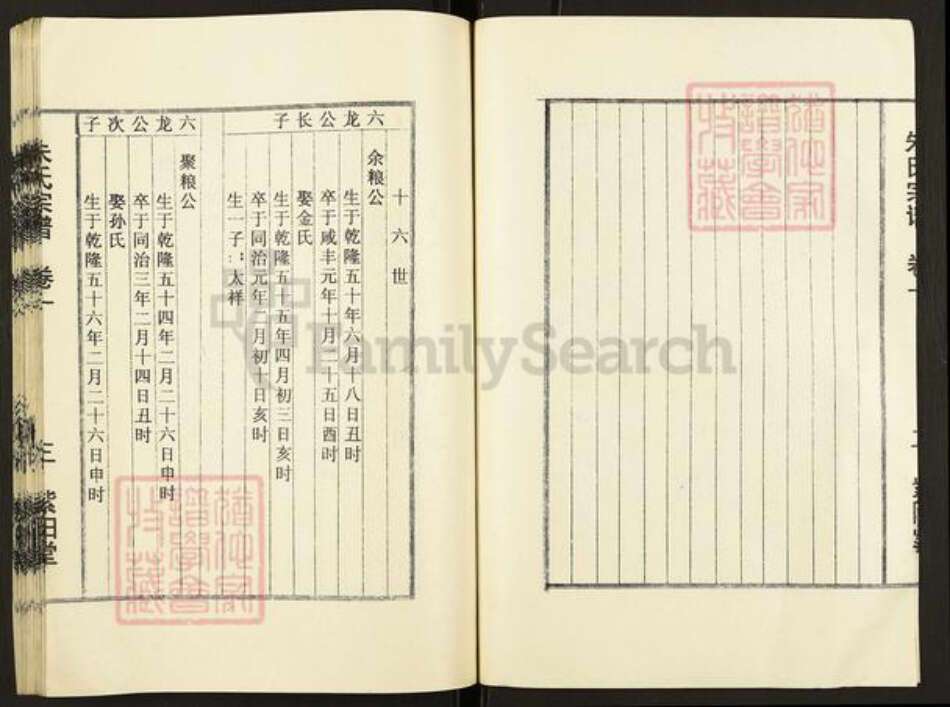 朱氏宗谱 卷一
十六世
六龙公长子
余粮公
生于乾隆五十年六月十八日丑时
卒于咸丰元年十月二十五日酉时
娶金氏
生于乾隆五十五年四月初三日亥时
卒于同治元年二月初十日亥时
生一子：太祥
六龙公次子
聚粮公
生于乾隆五十四年二月二十六日申时
卒于同治三年二月十四日丑时
娶孙氏
生于乾隆五十六年二月二十六日申时
朱氏宗谱 卷一 三 紫阳堂
FamilySearch